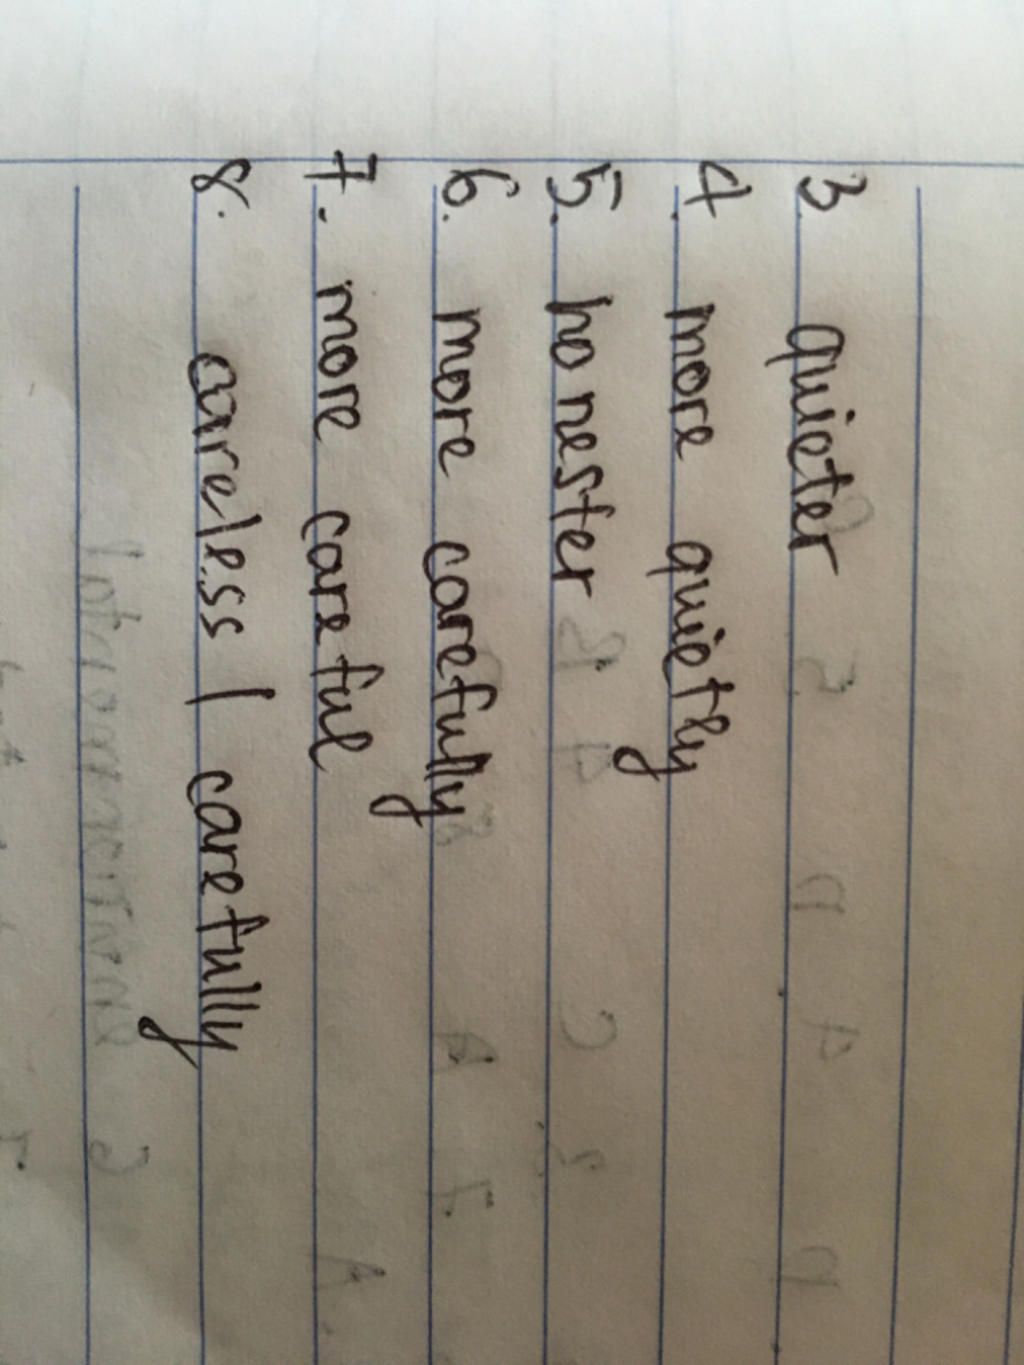 3. quieter
4. more quietly
5. honester
6. more carefully
7. more careful
8. careless / carefully